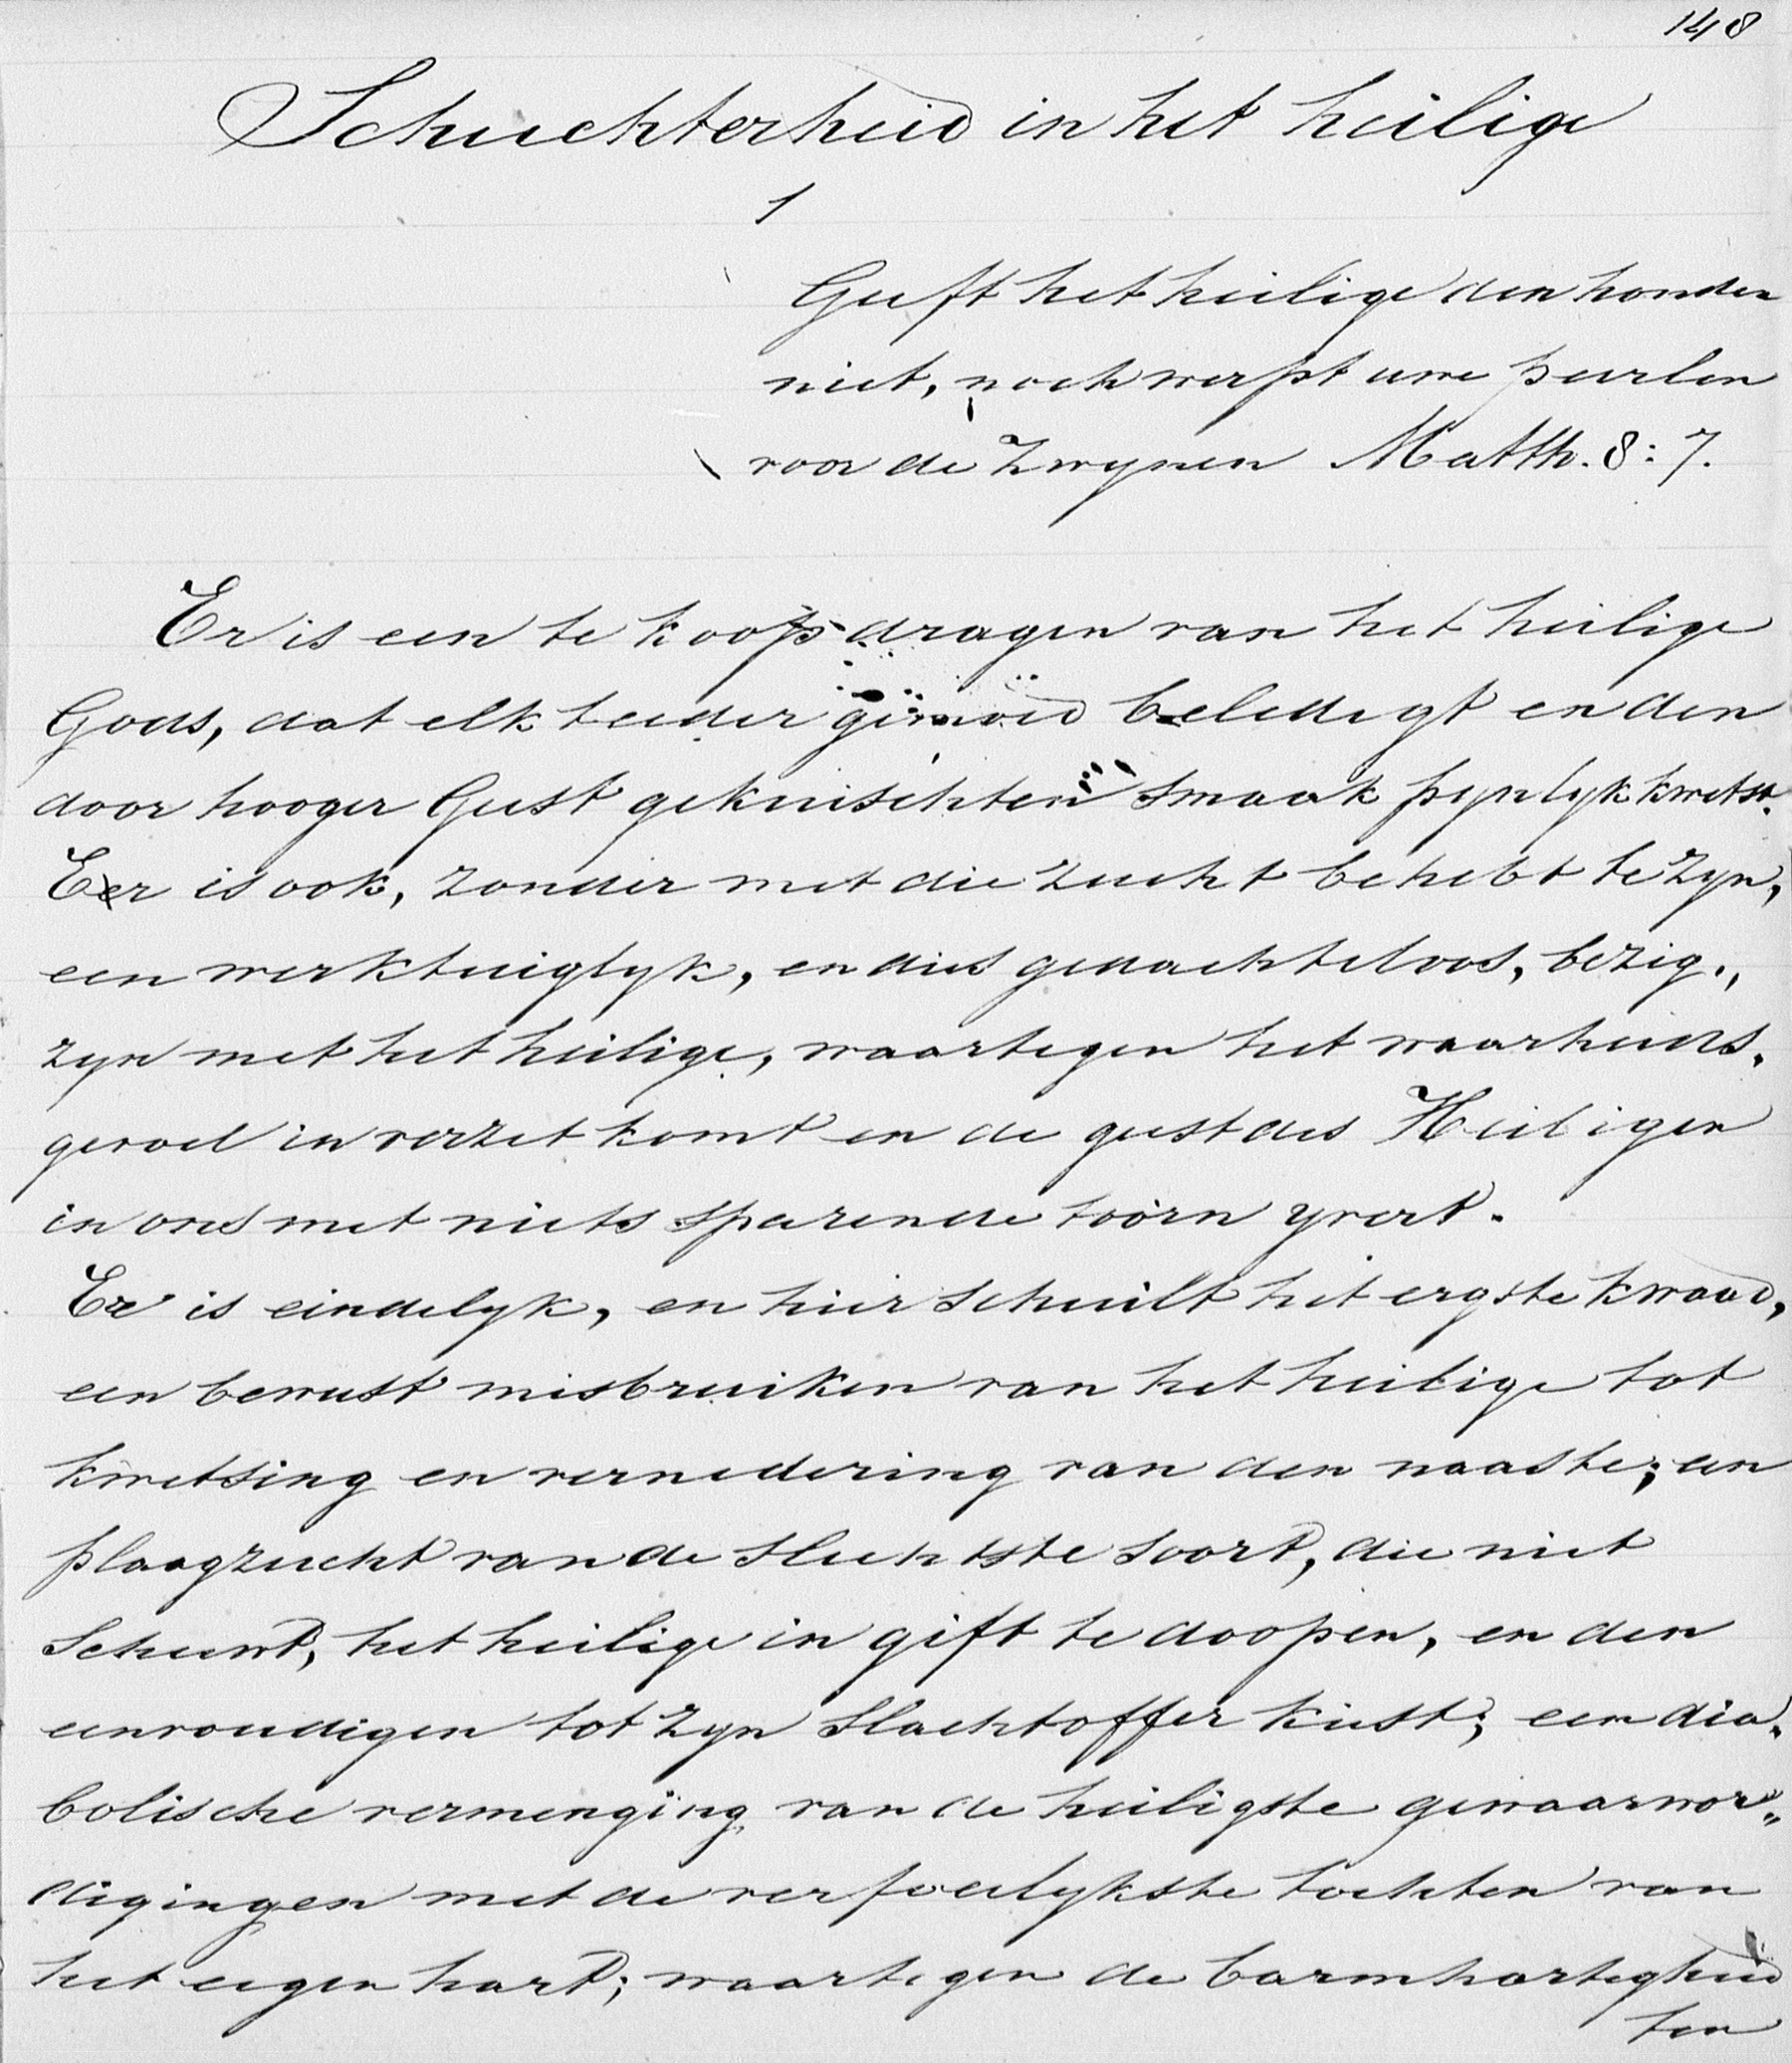 148
Schuchterheid in het heilige
1
Geeft het heilige den honden
niet, noch werpt uwe peerlen
voor de zwynen Matth. 8:7.
Er is een te koop dragen van het heilige
Gods, dat elk teeder gemoed beledigt en den
door hooger Geest gekuischten smaak pynlyk kwetst.
Er is ook, zonder met die zucht behebt te zyn,
een werktuiglyk, en dies gedachteloos, bezig.,
zyn met het heilige, waartegen het waarheids.
gevoel in verzet komt en de geest des Heiligen
in ons met niets sparende toorn yvert.
Er is eindelyk, en hier schuilt het ergste kwaad,
een bewust misbruiken van het heilige tot
kwetsing en vernedering van den naaste; een
plaagzucht van de slechtste soort, die niet
schuwt, het heilige in gift te doopen, en den
eenvoudigen tot zyn slachtoffer kiest; een dia.
bolische vermenging van de heiligste gewaarwor„
digingen met de verfoeilykste tochten van
het eigen hart; waartegen de barmhartigheid
ten